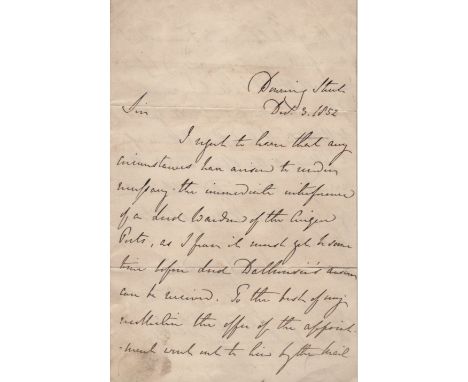 Downing Street
Dec. 3. 1852
Sir
I regret to learn that any
circumstances have arisen to render
necessary the immediate interference
of a Lord Warden of the Cinque
Ports, as I fear it must yet be some
time before Lord Dalhousie's answer
can be received. To the best of my
recollection the offer of the appoint
-ment went out to him by the Mail